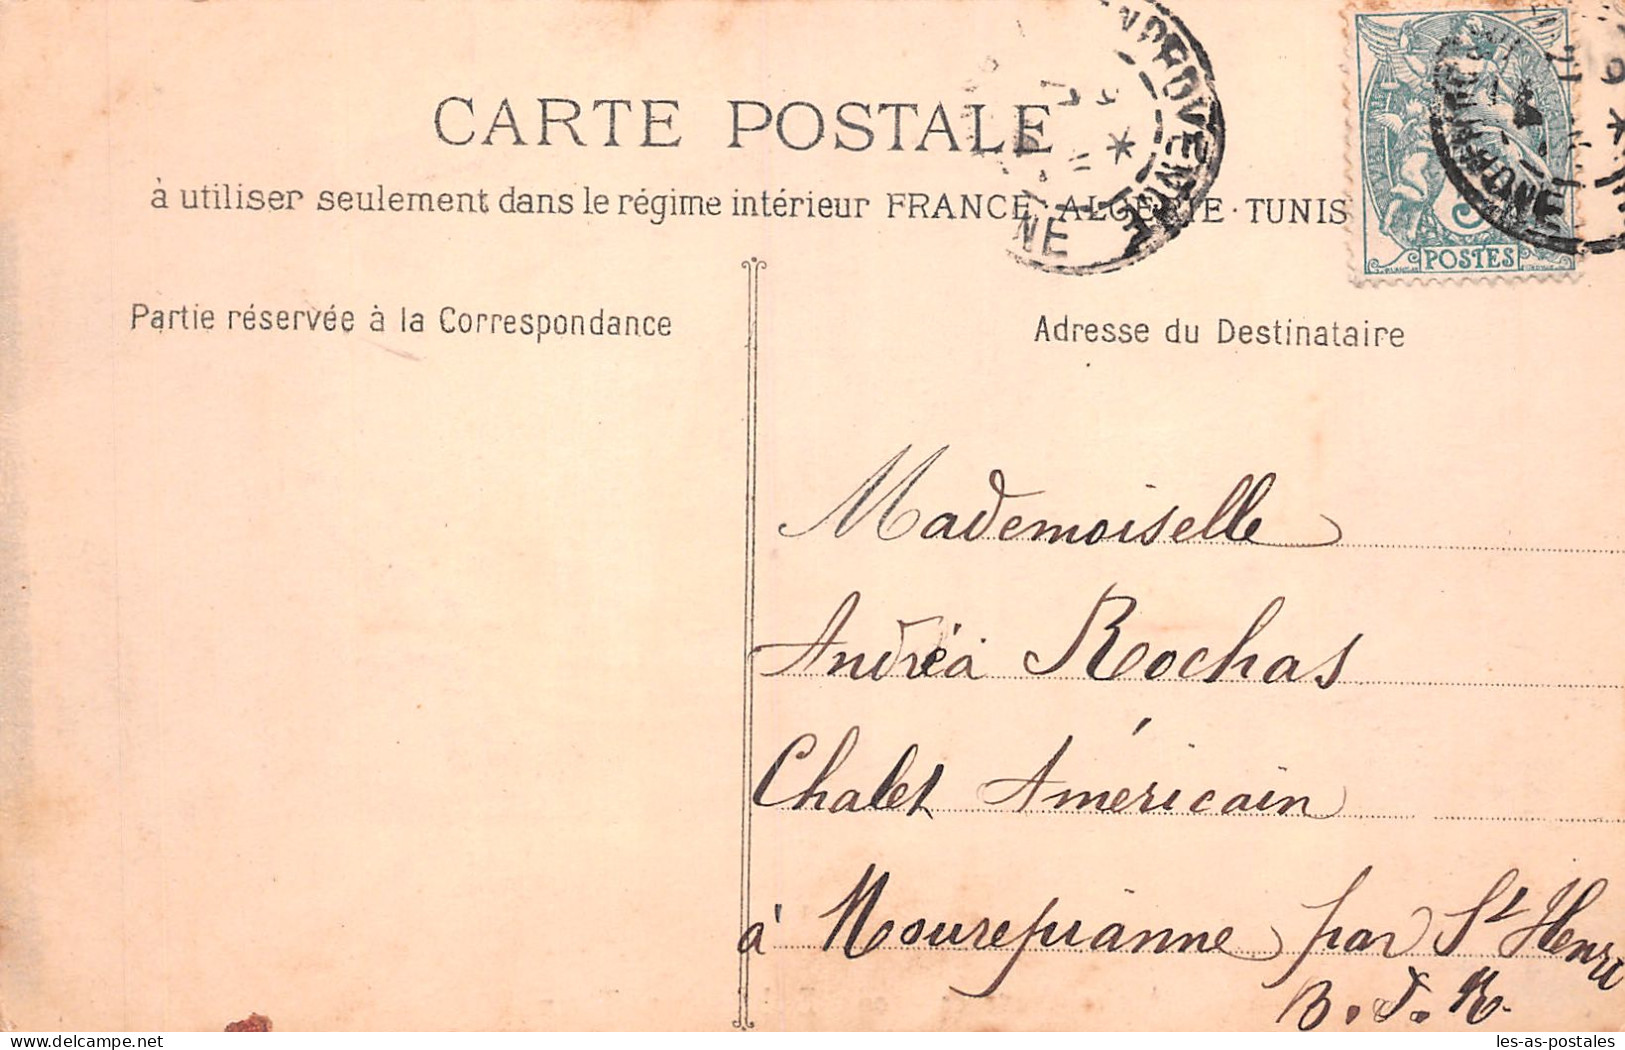 CARTE POSTALE
à utiliser seulement dans le régime intérieur FRANCE, ALGÉRIE · TUNIS
Partie réservée à la Correspondance
Adresse du Destinataire
5
POSTES
Mademoiselle
Andréa Rochas
Chalet Américain
à Mourepianne par St Henri
B. d. R.
les-as-postales